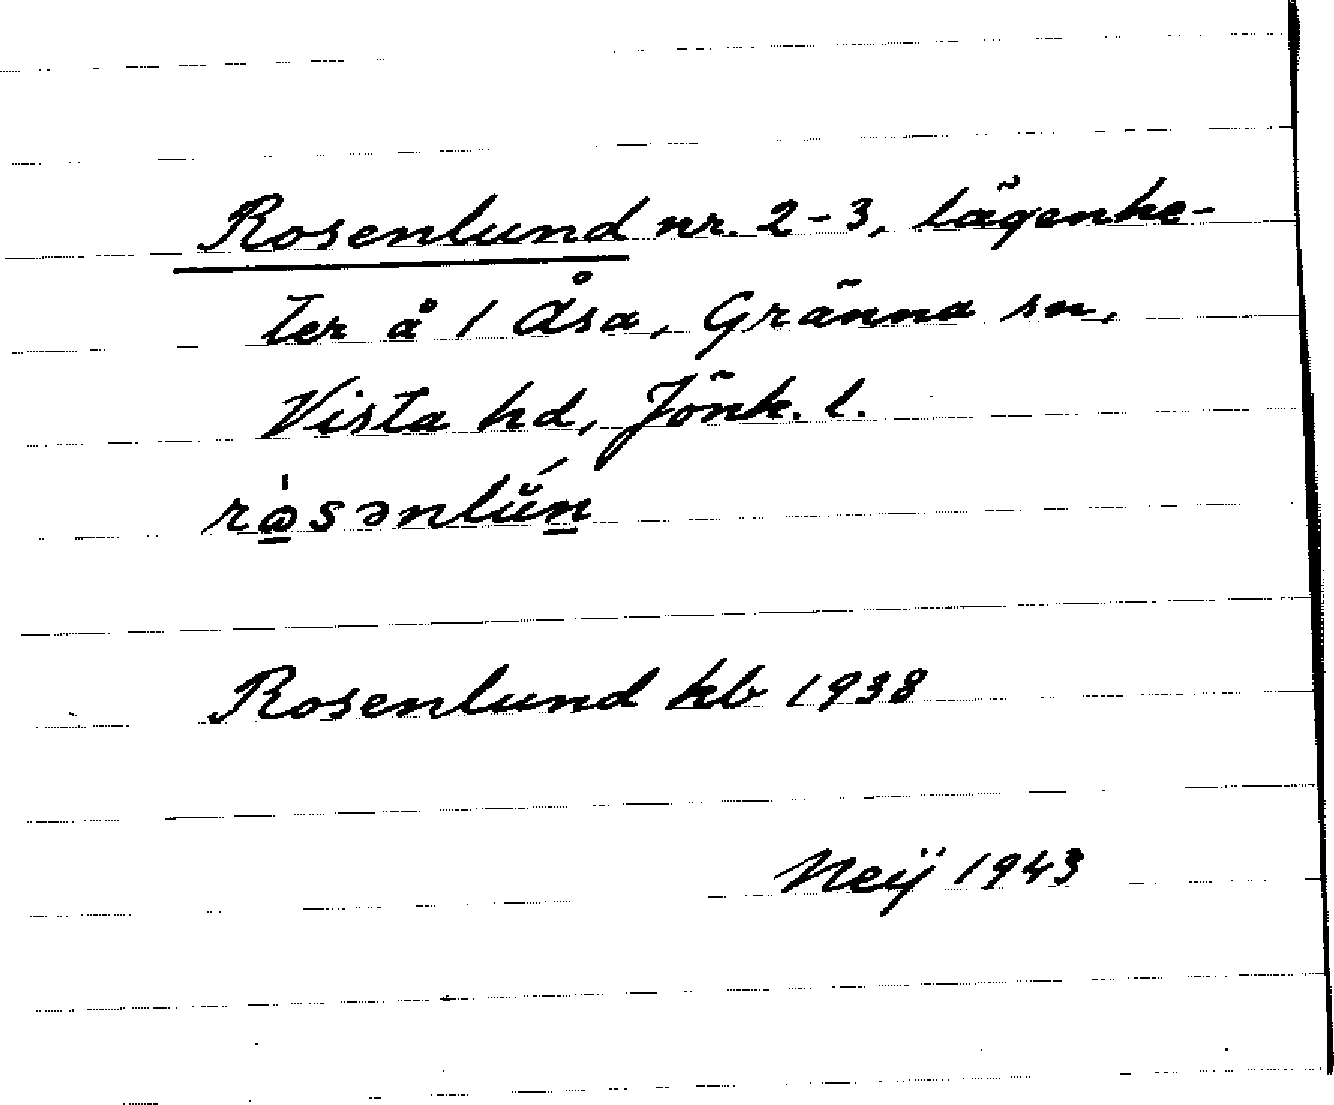 Rosenlund nr. 2-3, lägenhe-
ter å 1 Åsa, Gränna sn,
Vista hd, Jönk. l.
Rosenlund kb 1938
Neij 1943